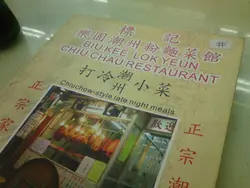 標記
樂園潮州粉麵菜館
BIU KEE LOK YEUN
CHIU CHAU RESTAURANT
打冷
潮州
小菜
Chiuchow-style late night meals
歡迎
正宗潮
正宗家